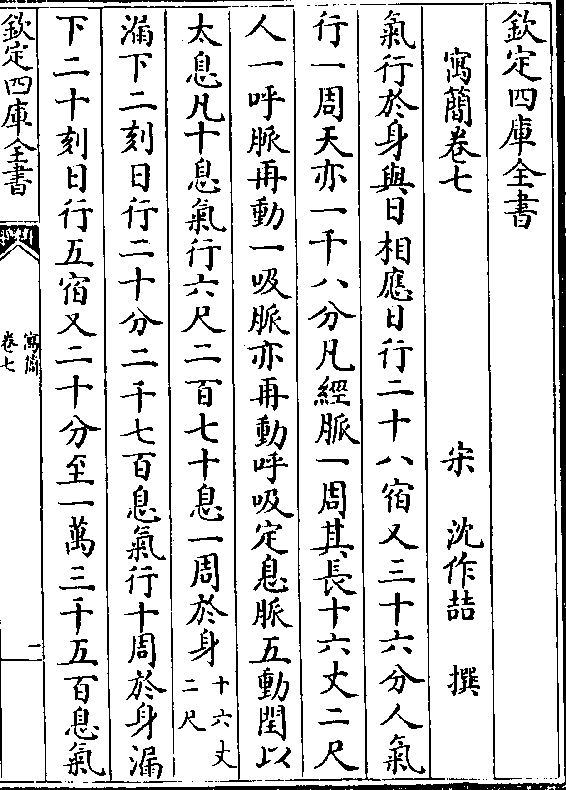 欽定四庫全書
寓簡卷七
宋 沈作喆 撰
氣行於身與日相應日行二十八宿又三十六分人氣
行一周天亦一千八分凡經脈一周其長十六丈二尺
人一呼脈再動一吸脈亦再動呼吸定息脈五動閏以
太息凡十息氣行六尺二百七十息一周於身十六丈二尺
漏下二刻日行二十分二千七百息氣行十周於身漏
下二十刻日行五宿又二十分至一萬三千五百息氣
欽定四庫全書
寓簡
卷七